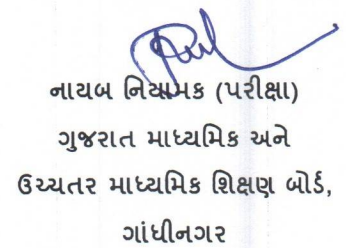 નાયબ નિયામક (પરીક્ષા)
ગુજરાત માધ્યમિક અને
ઉચ્ચતર માધ્યમિક શિક્ષણ બોર્ડ,
ગાંધીનગર